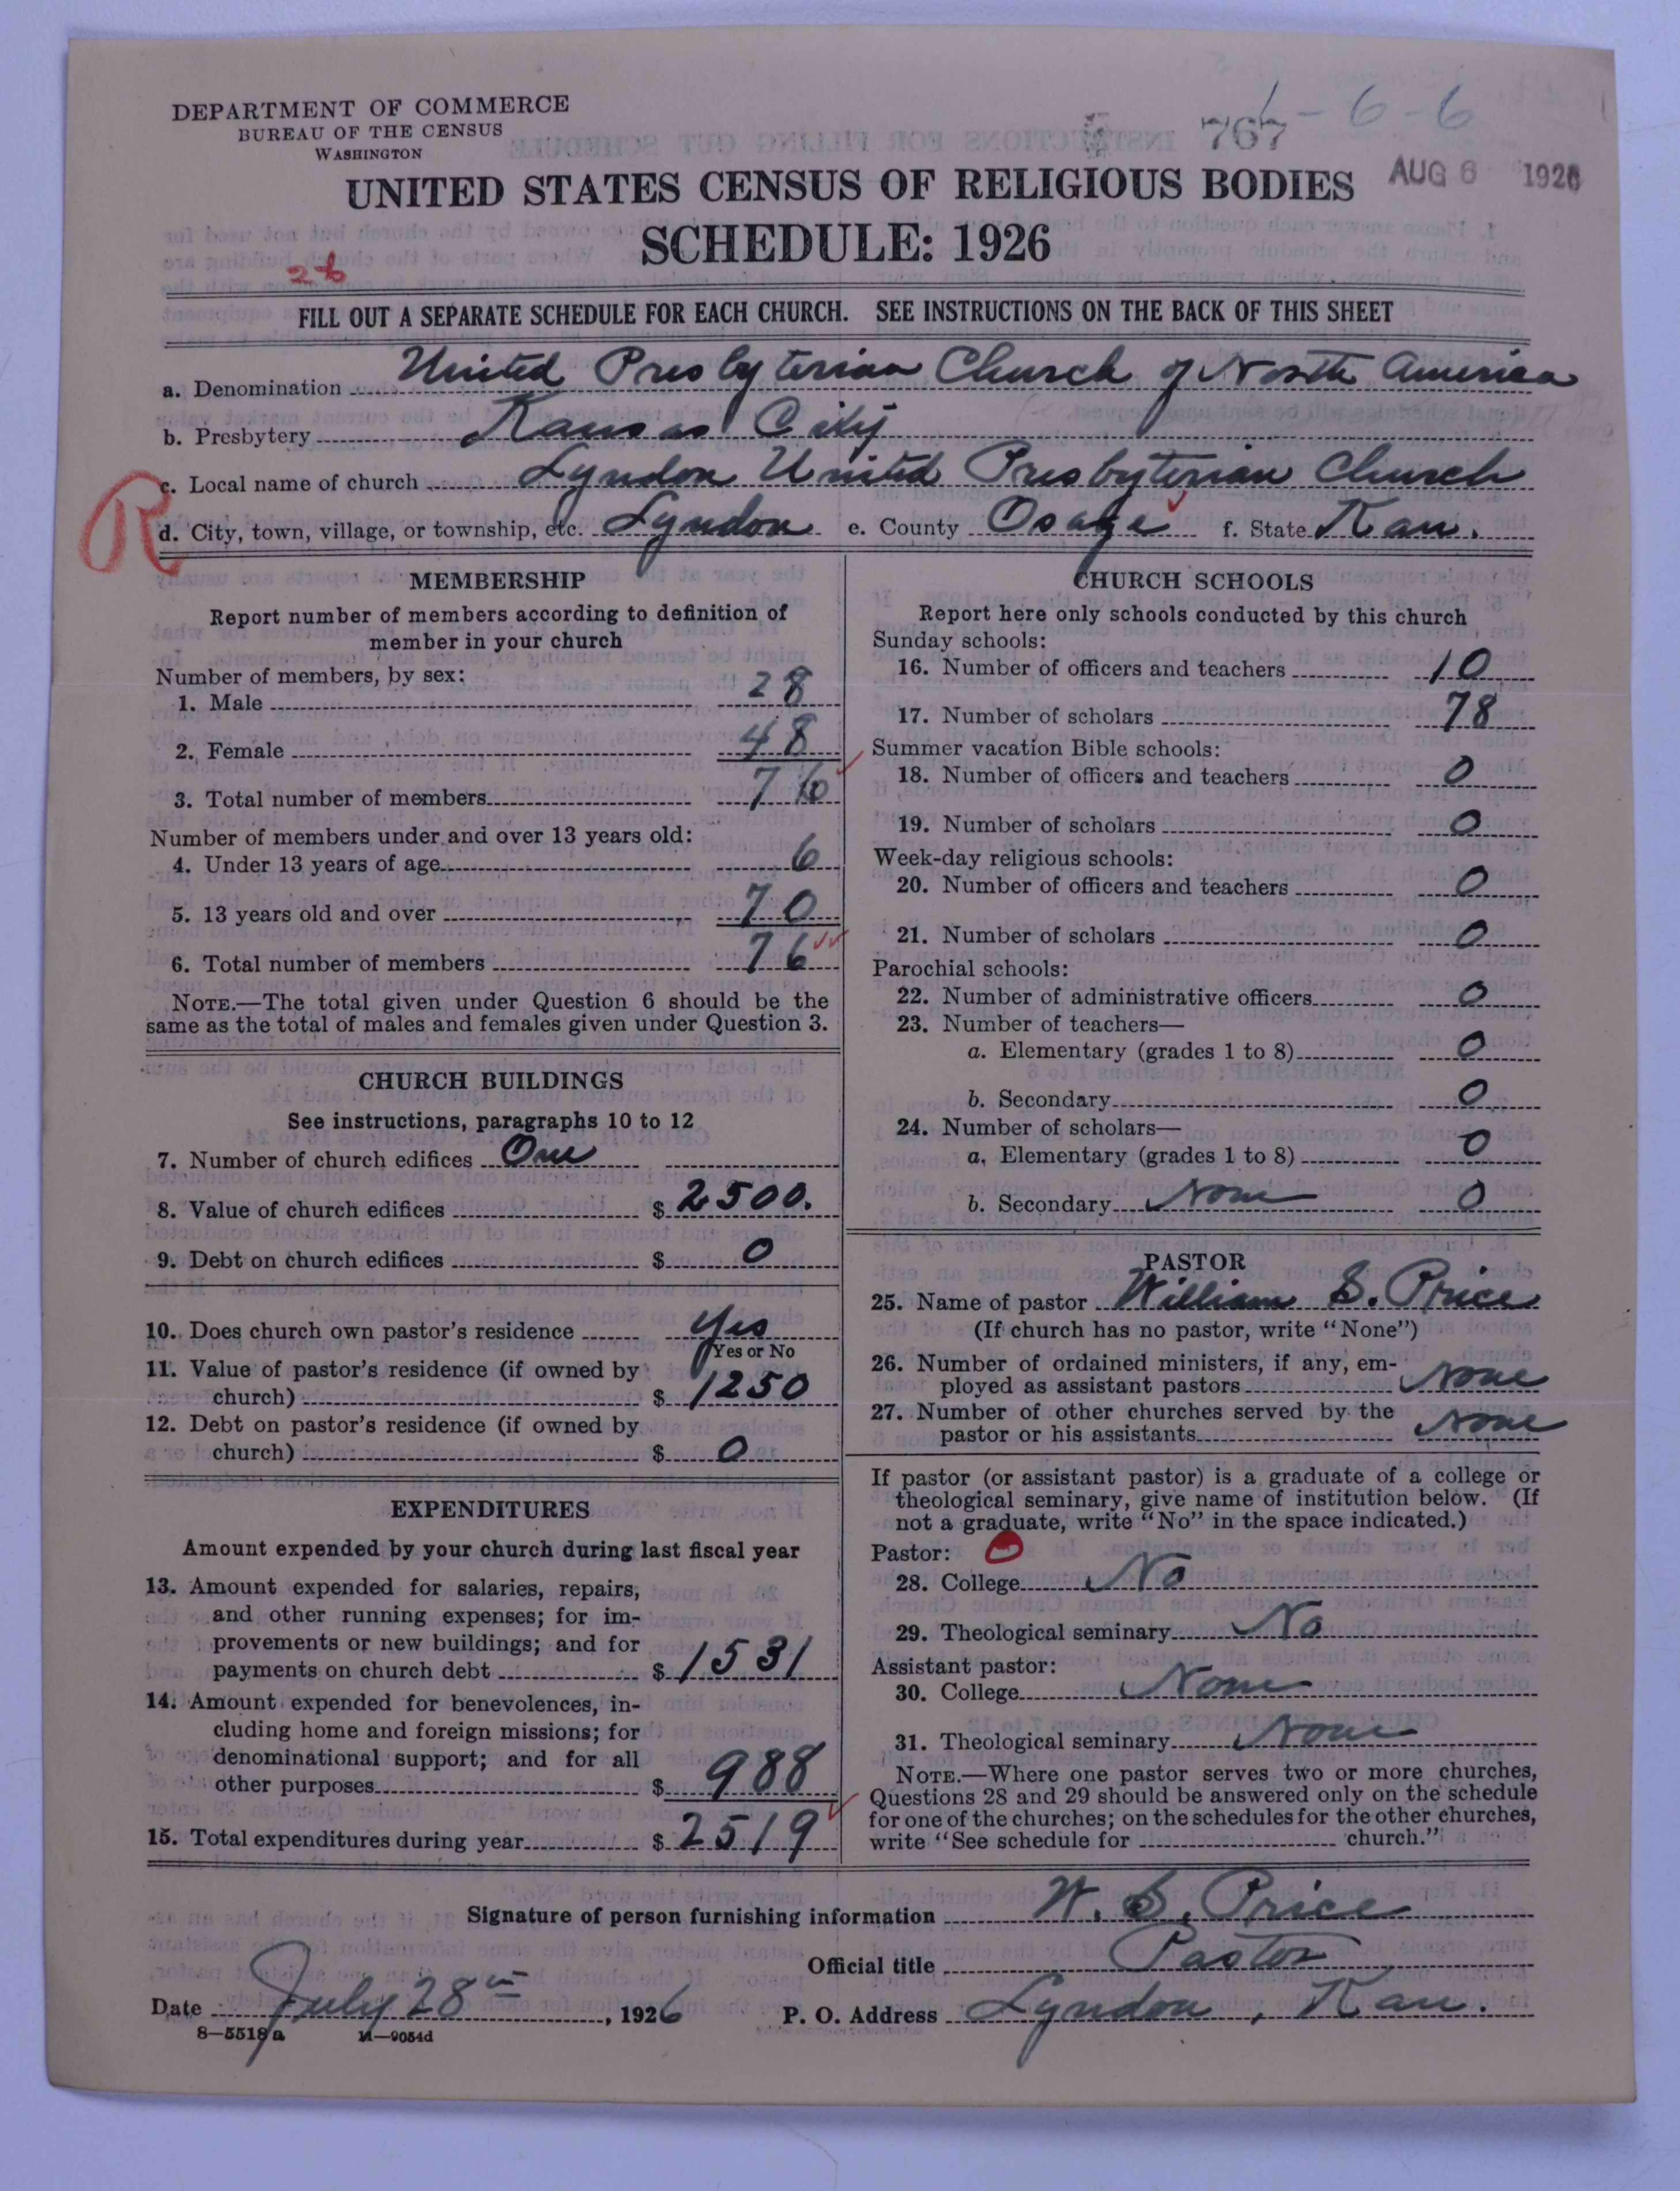 DEPARTMENT OF COMMERCE
BUREAU OF THE CENSUS
WASHINGTON
767
1-6-6
AUG 6 1926
UNITED STATES CENSUS OF RELIGIOUS BODIES
SCHEDULE: 1926
26
FILL OUT A SEPARATE SCHEDULE FOR EACH CHURCH. SEE INSTRUCTIONS ON THE BACK OF THIS SHEET
a. Denomination United Presbyterian Church of North America
b. Presbytery Kansas City
c. Local name of church Lyndon United Presbyterian Church
R
d. City, town, village, or township, etc. Lyndon e. County Osage f. State Kan.
MEMBERSHIP
Report number of members according to definition of
member in your church
Number of members, by sex:
1. Male 28
2. Female 48
3. Total number of members 76
Number of members under and over 13 years old:
4. Under 13 years of age 6
5. 13 years old and over 70
6. Total number of members 76
NOTE.—The total given under Question 6 should be the
same as the total of males and females given under Question 3.
CHURCH BUILDINGS
See instructions, paragraphs 10 to 12
7. Number of church edifices One
8. Value of church edifices $ 2500.
9. Debt on church edifices $ 0
10. Does church own pastor's residence Yes
Yes or No
11. Value of pastor's residence (if owned by
church) $ 1250
12. Debt on pastor's residence (if owned by
church) $ 0
EXPENDITURES
Amount expended by your church during last fiscal year
13. Amount expended for salaries, repairs,
and other running expenses; for im-
provements or new buildings; and for
payments on church debt $ 1531
14. Amount expended for benevolences, in-
cluding home and foreign missions; for
denominational support; and for all
other purposes $ 988
15. Total expenditures during year $ 2519
CHURCH SCHOOLS
Report here only schools conducted by this church
Sunday schools:
16. Number of officers and teachers 10
17. Number of scholars 78
Summer vacation Bible schools:
18. Number of officers and teachers 0
19. Number of scholars 0
Week-day religious schools:
20. Number of officers and teachers 0
21. Number of scholars 0
Parochial schools:
22. Number of administrative officers 0
23. Number of teachers—
a. Elementary (grades 1 to 8) 0
b. Secondary 0
24. Number of scholars—
a. Elementary (grades 1 to 8) 0
b. Secondary None 0
PASTOR
25. Name of pastor William S. Price
(If church has no pastor, write "None")
26. Number of ordained ministers, if any, em-
ployed as assistant pastors None
27. Number of other churches served by the
pastor or his assistants None
If pastor (or assistant pastor) is a graduate of a college or
theological seminary, give name of institution below. (If
not a graduate, write "No" in the space indicated.)
Pastor: 0
28. College No
29. Theological seminary No
Assistant pastor:
30. College None
31. Theological seminary None
NOTE.—Where one pastor serves two or more churches,
Questions 28 and 29 should be answered only on the schedule
for one of the churches; on the schedules for the other churches,
write "See schedule for church."
Signature of person furnishing information W. S. Price
Official title Pastor
Date July 28th, 1926 P. O. Address Lyndon, Kan.
8—5518a 11—9054d